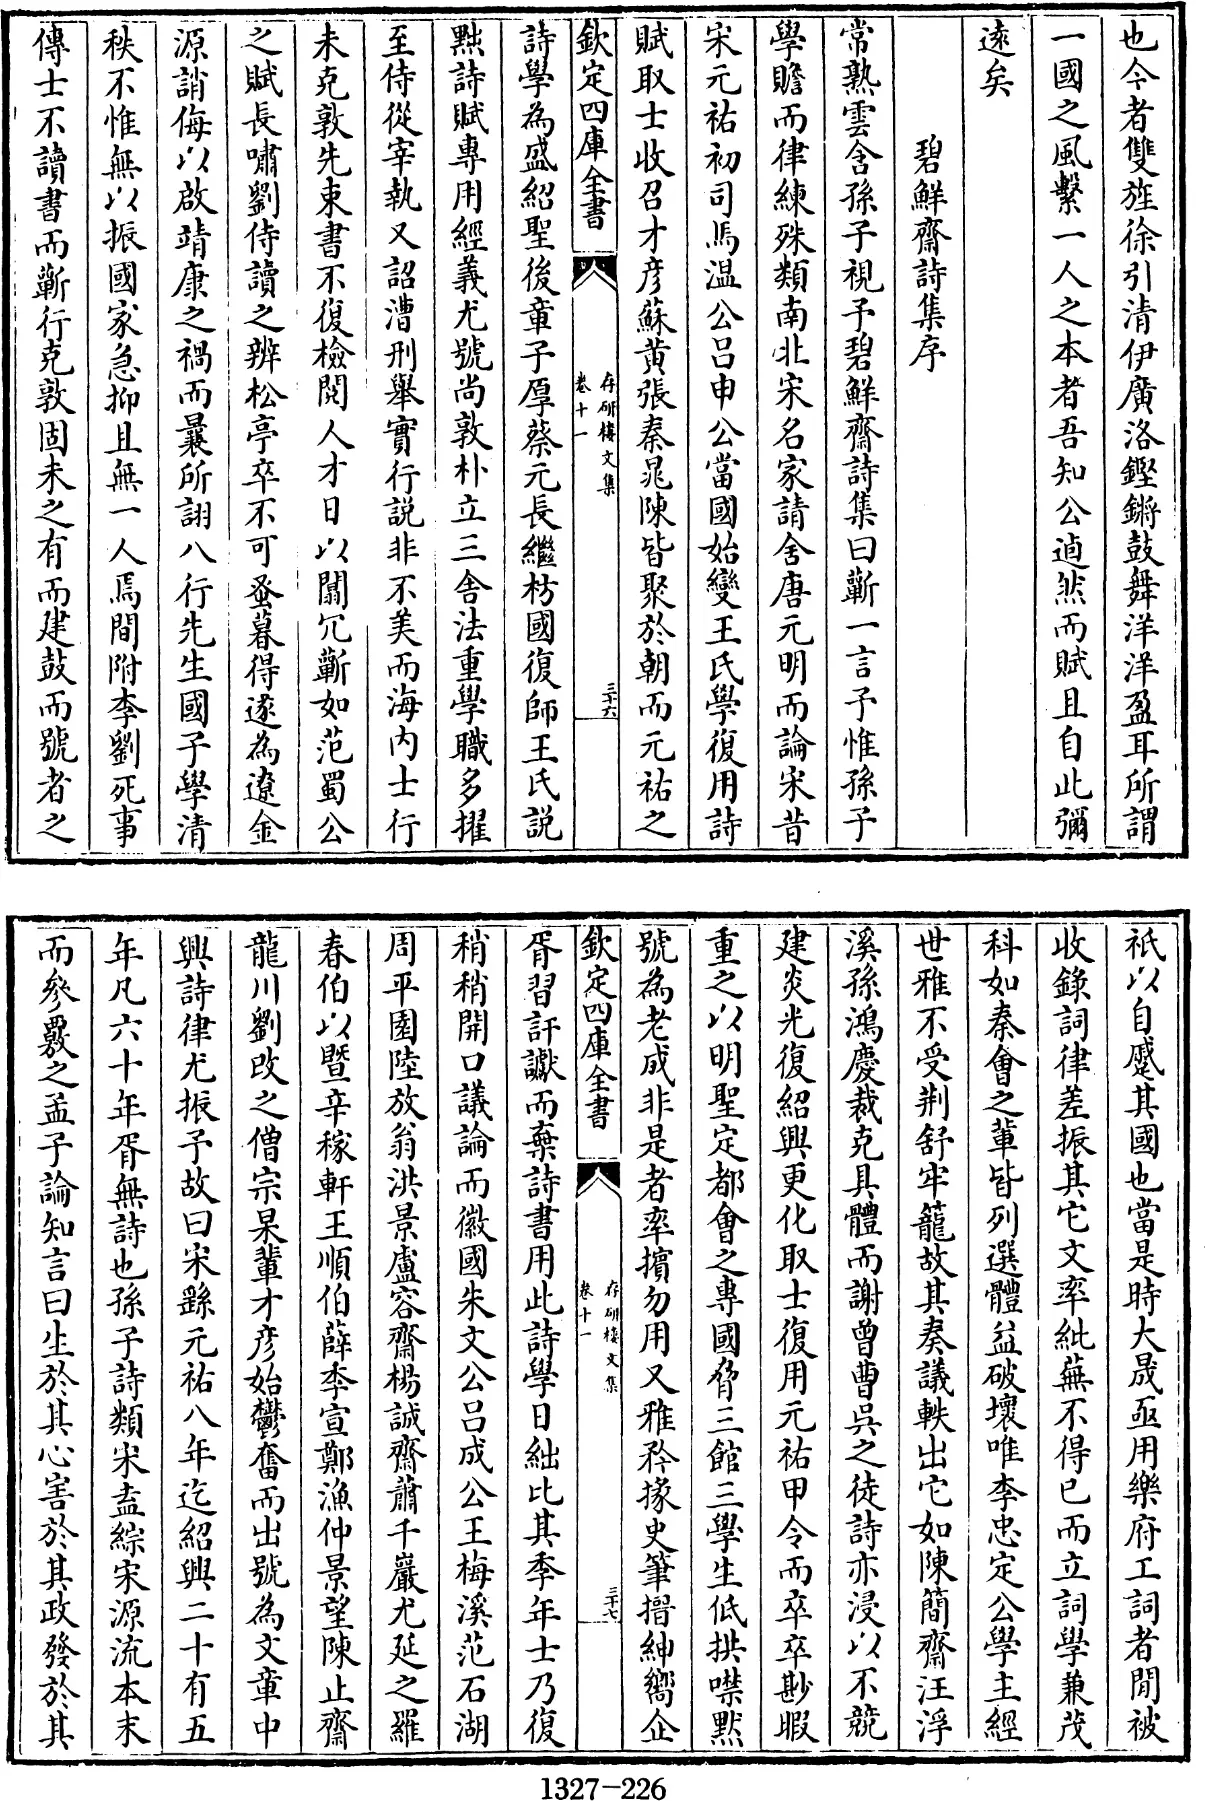 也今者雙旌徐引清伊廣洛鏗鏘鼓舞洋洋盈耳所謂
一國之風繫一人之本者吾知公逌然而賦且自此彌
遠矣
碧鮮齋詩集序
常熟雲含孫子視予碧鮮齋詩集曰蘄一言予惟孫子
學贍而律練殊類南北宋名家請舍唐元明而論宋昔
宋元祐初司馬温公吕申公當國始變王氏學復用詩
賦取士收召才彦蘇黄張秦晁陳皆聚於朝而元祐之
欽定四庫全書
存研樓文集
卷十一
三十六
詩學為盛紹聖後章子厚蔡元長繼枋國復師王氏説
黜詩賦專用經義尤號尚敦朴立三舍法重學職多擢
至侍從宰執又詔漕刑舉實行説非不美而海内士行
未克敦先束書不復檢閲人才日以闒冗蘄如范蜀公
之賦長嘯劉侍讀之辨松亭卒不可蚤暮得遂為遼金
源誚侮以啟靖康之禍而曩所詡八行先生國子學清
秩不惟無以振國家急抑且無一人焉間附李劉死事
傳士不讀書而蘄行克敦固未之有而建鼓而號者之
祇以自蹙其國也當是時大晟亟用樂府工詞者間被
收錄詞律差振其它文率紕蕪不得已而立詞學兼茂
科如秦會之輩皆列選體益破壞唯李忠定公學主經
世雅不受荆舒牢籠故其奏議軼出它如陳簡齋汪浮
溪孫鴻慶裁克具體而謝曾曹吳之徒詩亦浸以不競
建炎光復紹興更化取士復用元祐甲令而卒卒尠暇
重之以明聖定都會之專國脅三館三學生低拱噤默
號為老成非是者率擯勿用又雅矜掾史筆搢紳嚮企
欽定四庫全書
存研樓文集
卷十一
三十七
胥習訐讞而棄詩書用此詩學日絀比其季年士乃復
稍稍開口議論而徽國朱文公吕成公王梅溪范石湖
周平園陸放翁洪景盧容齋楊誠齋蕭千巖尤延之羅
春伯以暨辛稼軒王順伯薛季宣鄭漁仲景望陳止齋
龍川劉改之僧宗杲輩才彦始鬱奮而出號為文章中
興詩律尤振予故曰宋繇元祐八年迄紹興二十有五
年凡六十年胥無詩也孫子詩類宋盍綜宋源流本末
而參覈之孟子論知言曰生於其心害於其政發於其
1327-226